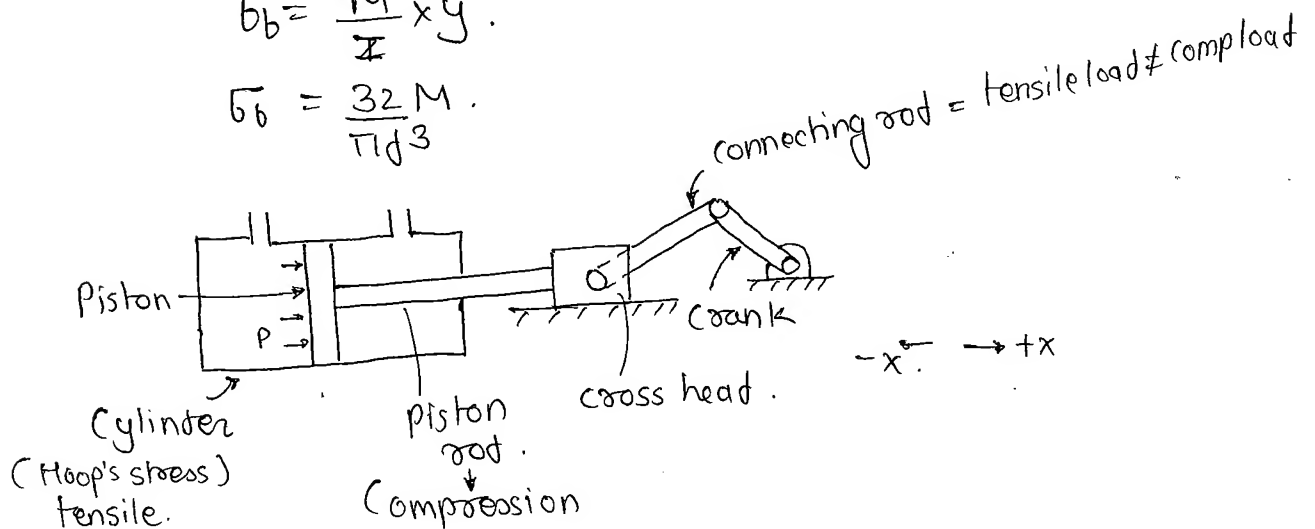 σb = M/I × y .
σb = 32M/πd3 .
connecting rod = tensile load & comp load
Piston
P
Crank
-x ← → +x
Cylinder
(Hoop's stress)
tensile.
Piston
rod .
Compression
cross head .